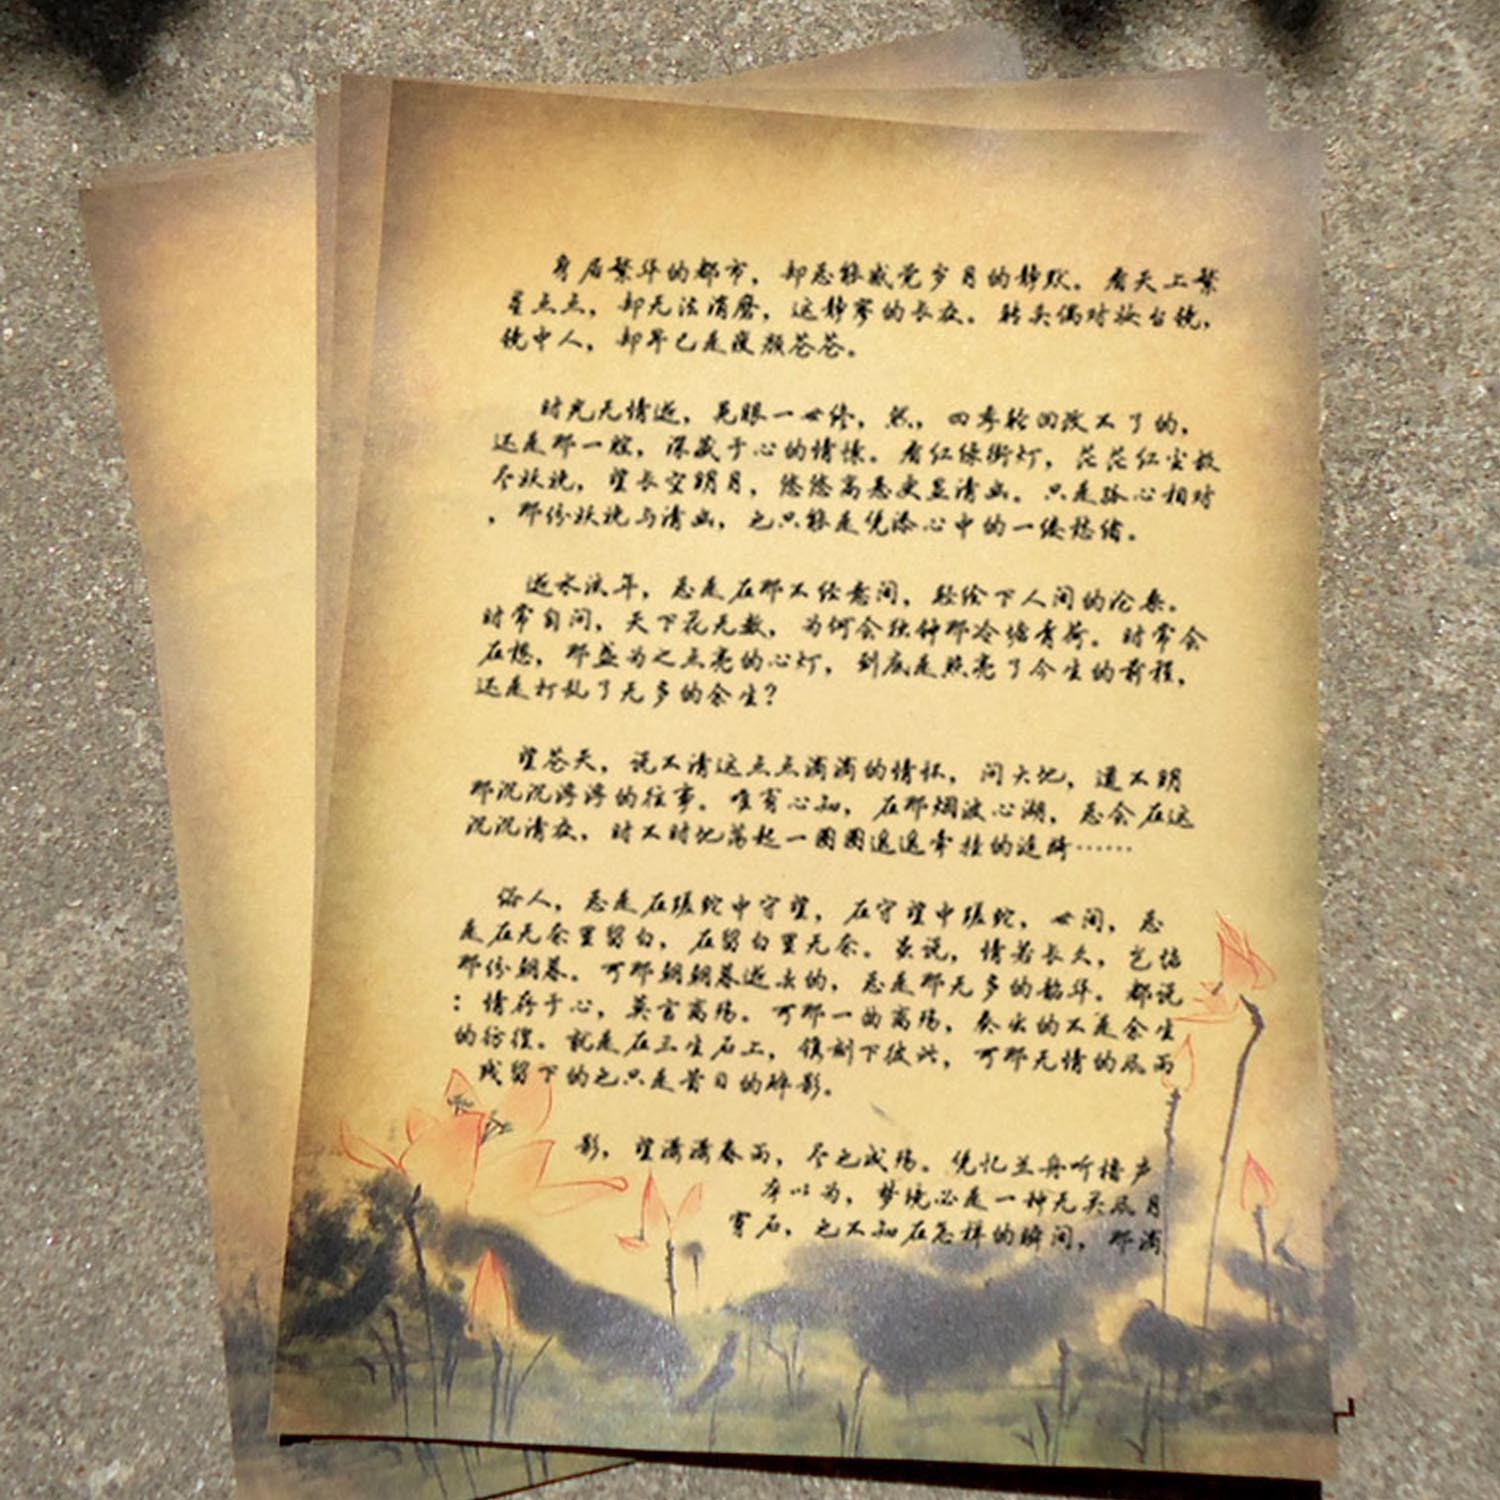 身居繁华的都市，却总能感觉岁月的静默。看天上繁
星点点，却无法消磨，这静寥的长夜。转头偶对妆台镜，
镜中人，却早已是瘦颜苍苍。
时光无情逝，晃眼一世终，然，四季轮回改不了的，
还是那一腔，深藏于心的情愫。看红绿街灯，茫茫红尘极
尽妖娆，望长空明月，悠悠高悬更显清幽。只是路心相对
，那份妖娆与清幽，也只能是凭添心中的一缕愁绪。
逝水流年，总是在那不经意间，轻绘下人间的沧桑。
时常自问，天下花无数，为何会独钟那冷塘青荷。时常会
在想，那盏为之点亮的心灯，到底是照亮了今生的前程，
还是打乱了无多的余生？
望苍天，说不清这点点滴滴的情怀，问大地，道不明
那沉沉浮浮的往事。唯有心知，在那烟波心湖，总会在这
沉沉清夜，时不时地荡起一圈圈遥遥牵挂的涟漪……
俗人，总是在蹉跎中守望，在守望中蹉跎，世间，总
是在无奈里留白，在留白里无奈。虽说，情若长久，岂惦
那份朝暮。可那朝朝暮逝去的，总是那无多的韶华。都说
：情存于心，莫言离殇。可那一曲离殇，奏出的不是余生
的彷徨。就是在三生石上，镌刻下彼此，可那无情的风雨
残留下的也只是昔日的碎影。
影，望潇潇春雨，尽也成殇。凭忆兰舟听橹声
本以为，梦境必是一种无关风月
穿石，也不知在怎样的瞬间，那滴